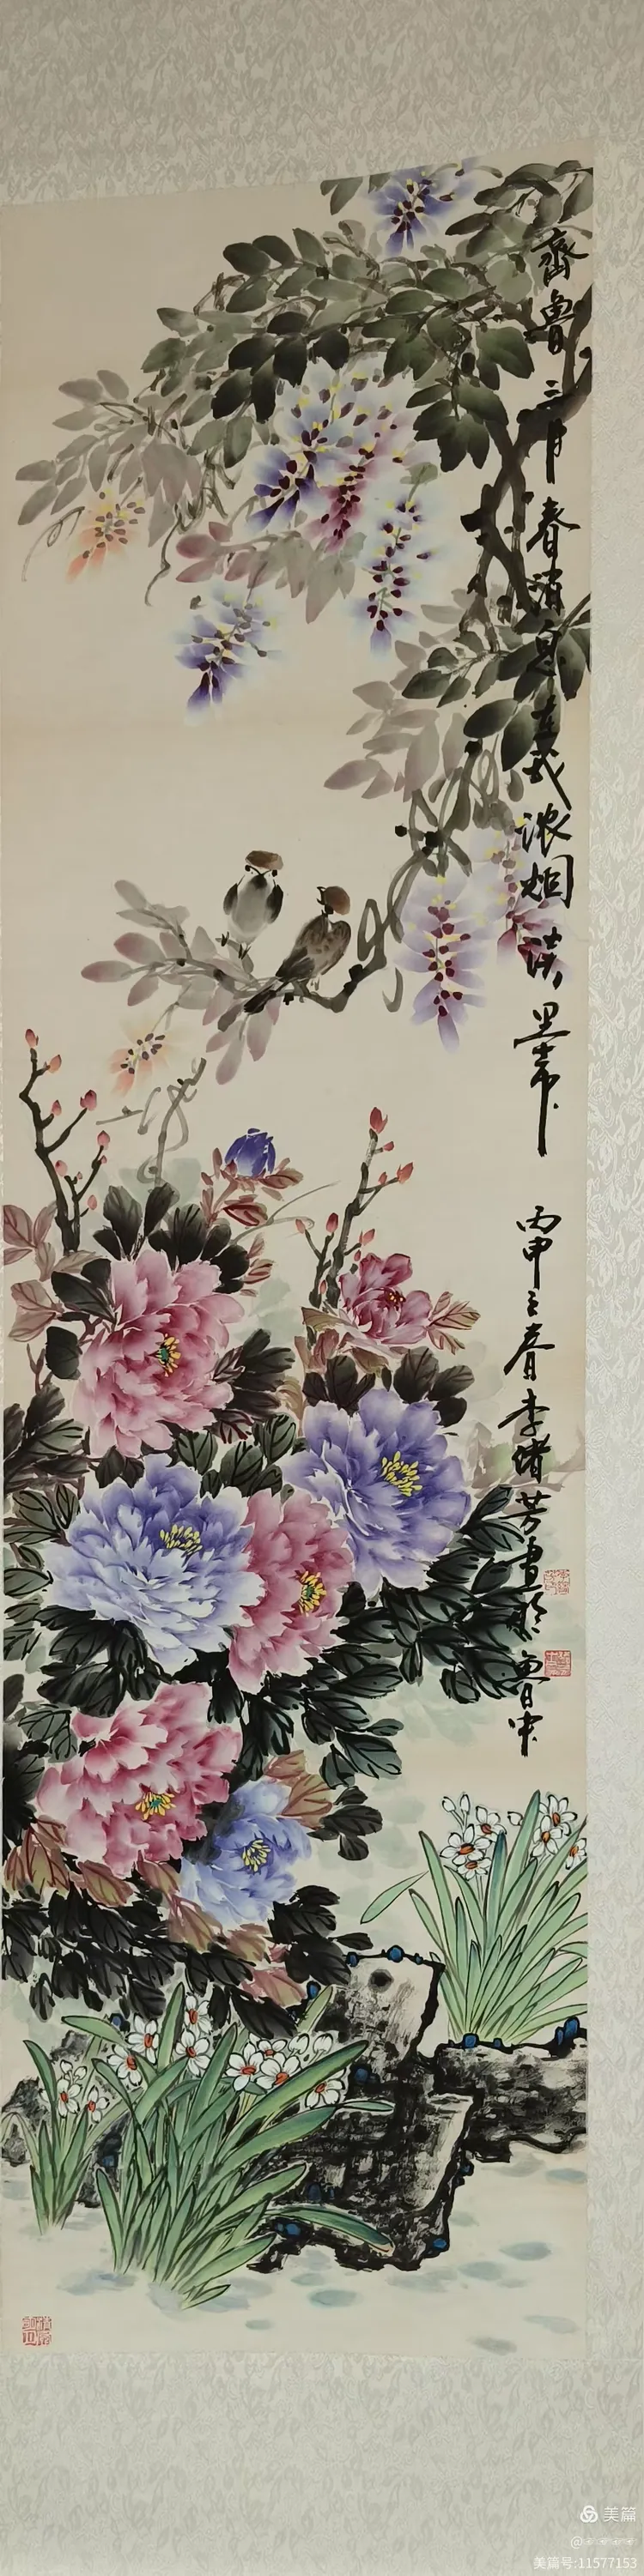 齊魯三月春消息在我浓烟淡墨中
丙申之春李绪芳畫於魯中
美篇
美篇号:11577153